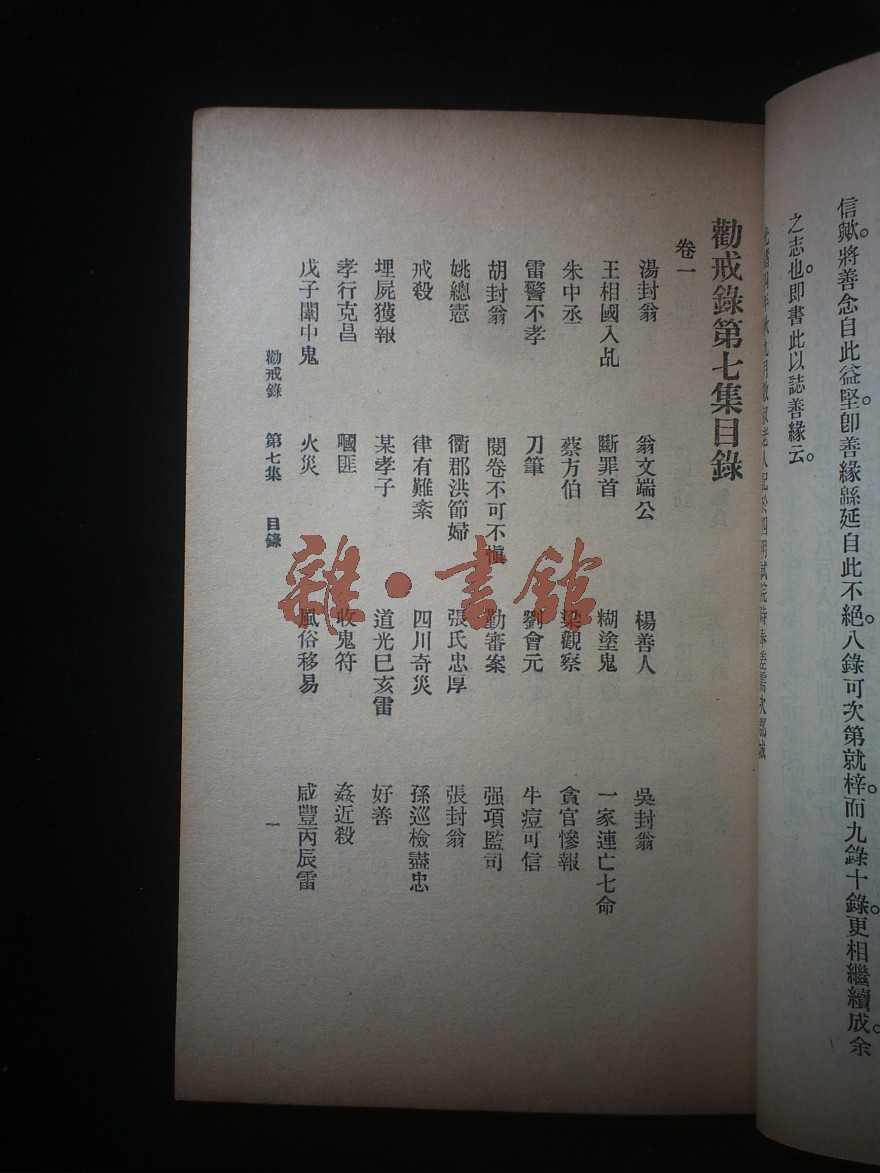 信歟。將善念自此益堅。卽善緣緜延自此不絕。八錄可次第就梓。而九錄十錄。更相繼續。成余
之志也。卽書此以誌善緣云。
勸戒錄第七集目錄
卷一
湯封翁 翁文端公 楊善人 吳封翁
王相國入乩 斷罪首 糊塗鬼 一家連亡七命
朱中丞 蔡方伯 梁觀察 貪官慘報
雷警不孝 刀筆 劉會元 牛痘可信
胡封翁 閱卷不可不愼 勘審案 强項監司
姚總憲 衢郡洪節婦 張氏忠厚 張封翁
戒殺 律有難紊 四川奇災 孫巡檢盡忠
埋屍獲報 某孝子 道光巳亥雷 好善
孝行克昌 嘓匪 收鬼符 姦近殺
戊子闈中鬼 火災 風俗移易 咸豐丙辰雷
勸戒錄 第七集 目錄 一
雜·書館